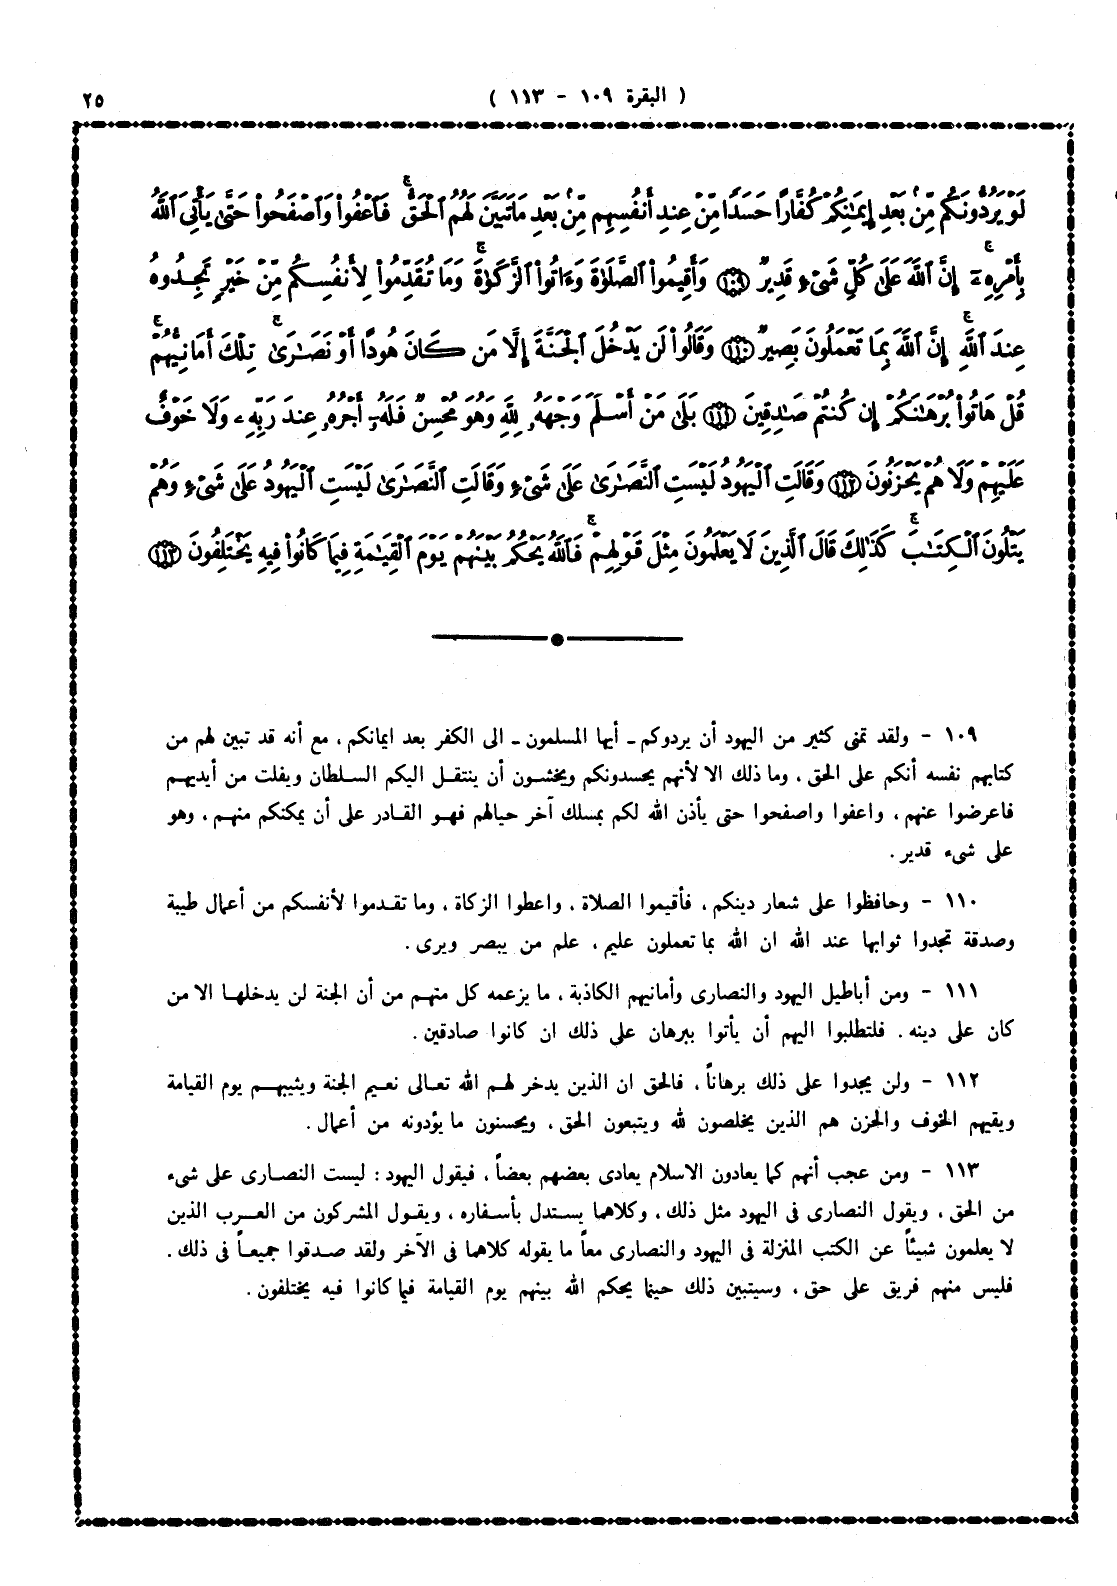 ( البقرة ١٠٩ - ١١٣ )
٢٥
لَوْ يَرُدُّونَكُم مِّنۢ بَعْدِ إِيمَٰنِكُمْ كُفَّارًا حَسَدًا مِّنْ عِندِ أَنفُسِهِم مِّنۢ بَعْدِ مَا تَبَيَّنَ لَهُمُ ٱلْحَقُّ ۖ فَٱعْفُوا۟ وَٱصْفَحُوا۟ حَتَّىٰ يَأْتِىَ ٱللَّهُ
بِأَمْرِهِۦٓ ۗ إِنَّ ٱللَّهَ عَلَىٰ كُلِّ شَىْءٍ قَدِيرٌ ﴿١٠٩﴾ وَأَقِيمُوا۟ ٱلصَّلَوٰةَ وَءَاتُوا۟ ٱلزَّكَوٰةَ ۚ وَمَا تُقَدِّمُوا۟ لِأَنفُسِكُم مِّنْ خَيْرٍ تَجِدُوهُ
عِندَ ٱللَّهِ ۗ إِنَّ ٱللَّهَ بِمَا تَعْمَلُونَ بَصِيرٌ ﴿١١٠﴾ وَقَالُوا۟ لَن يَدْخُلَ ٱلْجَنَّةَ إِلَّا مَن كَانَ هُودًا أَوْ نَصَٰرَىٰ ۗ تِلْكَ أَمَانِيُّهُمْ ۗ
قُلْ هَاتُوا۟ بُرْهَٰنَكُمْ إِن كُنتُمْ صَٰدِقِينَ ﴿١١١﴾ بَلَىٰ مَنْ أَسْلَمَ وَجْهَهُۥ لِلَّهِ وَهُوَ مُحْسِنٌ فَلَهُۥٓ أَجْرُهُۥ عِندَ رَبِّهِۦ وَلَا خَوْفٌ
عَلَيْهِمْ وَلَا هُمْ يَحْزَنُونَ ﴿١١٢﴾ وَقَالَتِ ٱلْيَهُودُ لَيْسَتِ ٱلنَّصَٰرَىٰ عَلَىٰ شَىْءٍ وَقَالَتِ ٱلنَّصَٰرَىٰ لَيْسَتِ ٱلْيَهُودُ عَلَىٰ شَىْءٍ وَهُمْ
يَتْلُونَ ٱلْكِتَٰبَ ۗ كَذَٰلِكَ قَالَ ٱلَّذِينَ لَا يَعْلَمُونَ مِثْلَ قَوْلِهِمْ ۚ فَٱللَّهُ يَحْكُمُ بَيْنَهُمْ يَوْمَ ٱلْقِيَٰمَةِ فِيمَا كَانُوا۟ فِيهِ يَخْتَلِفُونَ ﴿١١٣﴾
١٠٩ - ولقد تمنى كثير من اليهود أن يردوكم - أيها المسلمون - الى الكفر بعد ايمانكم ، مع أنه قد تبين لهم من
كتابهم نفسه أنكم على الحق ، وما ذلك الا لأنهم يحسدونكم ويخشون أن ينتقل اليكم السلطان ويفلت من أيديهم
فاعرضوا عنهم ، واعفوا واصفحوا حتى يأذن الله لكم بمسلك آخر حيالهم فهو القادر على أن يمكنكم منهم ، وهو
على شىء قدير .
١١٠ - وحافظوا على شعار دينكم ، فأقيموا الصلاة ، واعطوا الزكاة ، وما تقدموا لأنفسكم من أعمال طيبة
وصدقة تجدوا ثوابها عند الله ان الله بما تعملون عليم ، علم من يبصر ويرى .
١١١ - ومن أباطيل اليهود والنصارى وأمانيهم الكاذبة ، ما يزعمه كل منهم من أن الجنة لن يدخلها الا من
كان على دينه . فلتطلبوا اليهم أن يأتوا ببرهان على ذلك ان كانوا صادقين .
١١٢ - ولن يجدوا على ذلك برهاناً ، فالحق ان الذين يدخر لهم الله تعالى نعيم الجنة ويثيبهم يوم القيامة
ويقيهم الخوف والحزن هم الذين يخلصون لله ويتبعون الحق ، ويحسنون ما يؤدونه من أعمال .
١١٣ - ومن عجب أنهم كما يعادون الاسلام يعادى بعضهم بعضاً ، فيقول اليهود : ليست النصارى على شىء
من الحق ، ويقول النصارى فى اليهود مثل ذلك ، وكلاهما يستدل بأسفاره ، ويقول المشركون من العرب الذين
لا يعلمون شيئاً عن الكتب المنزلة فى اليهود والنصارى معاً ما يقوله كلاهما فى الآخر ولقد صدقوا جميعاً فى ذلك .
فليس منهم فريق على حق ، وسيتبين ذلك حينما يحكم الله بينهم يوم القيامة فيما كانوا فيه يختلفون .